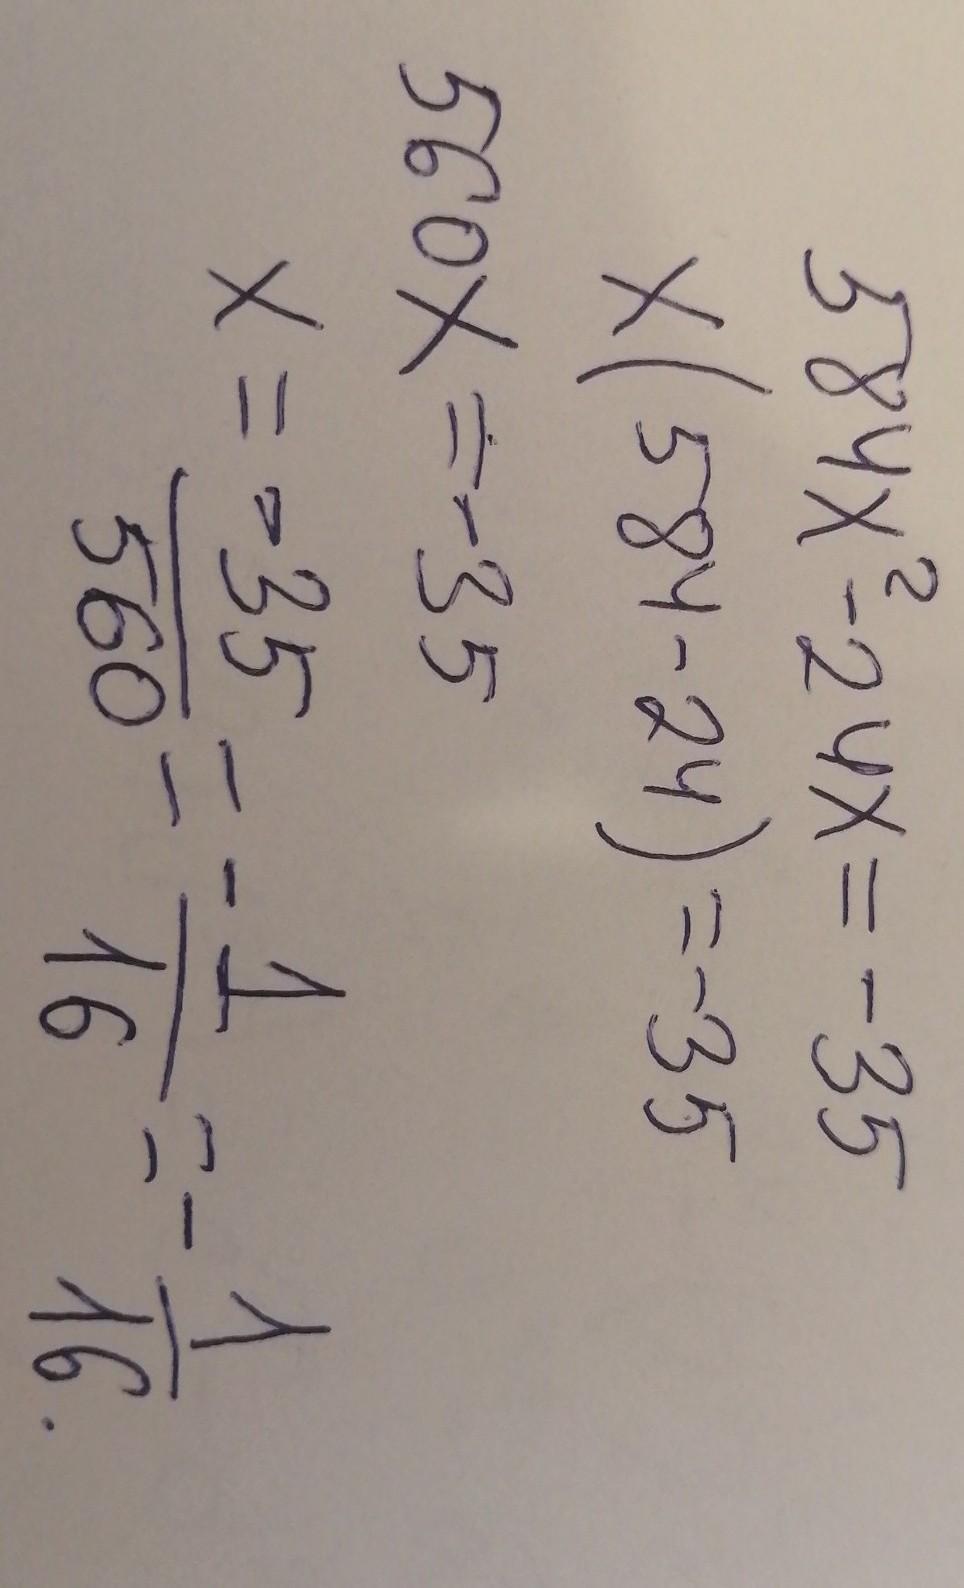 584x²-24x=-35
x(584-24)=-35
560x=-35
x=-35/560=-1/16=-1/16.